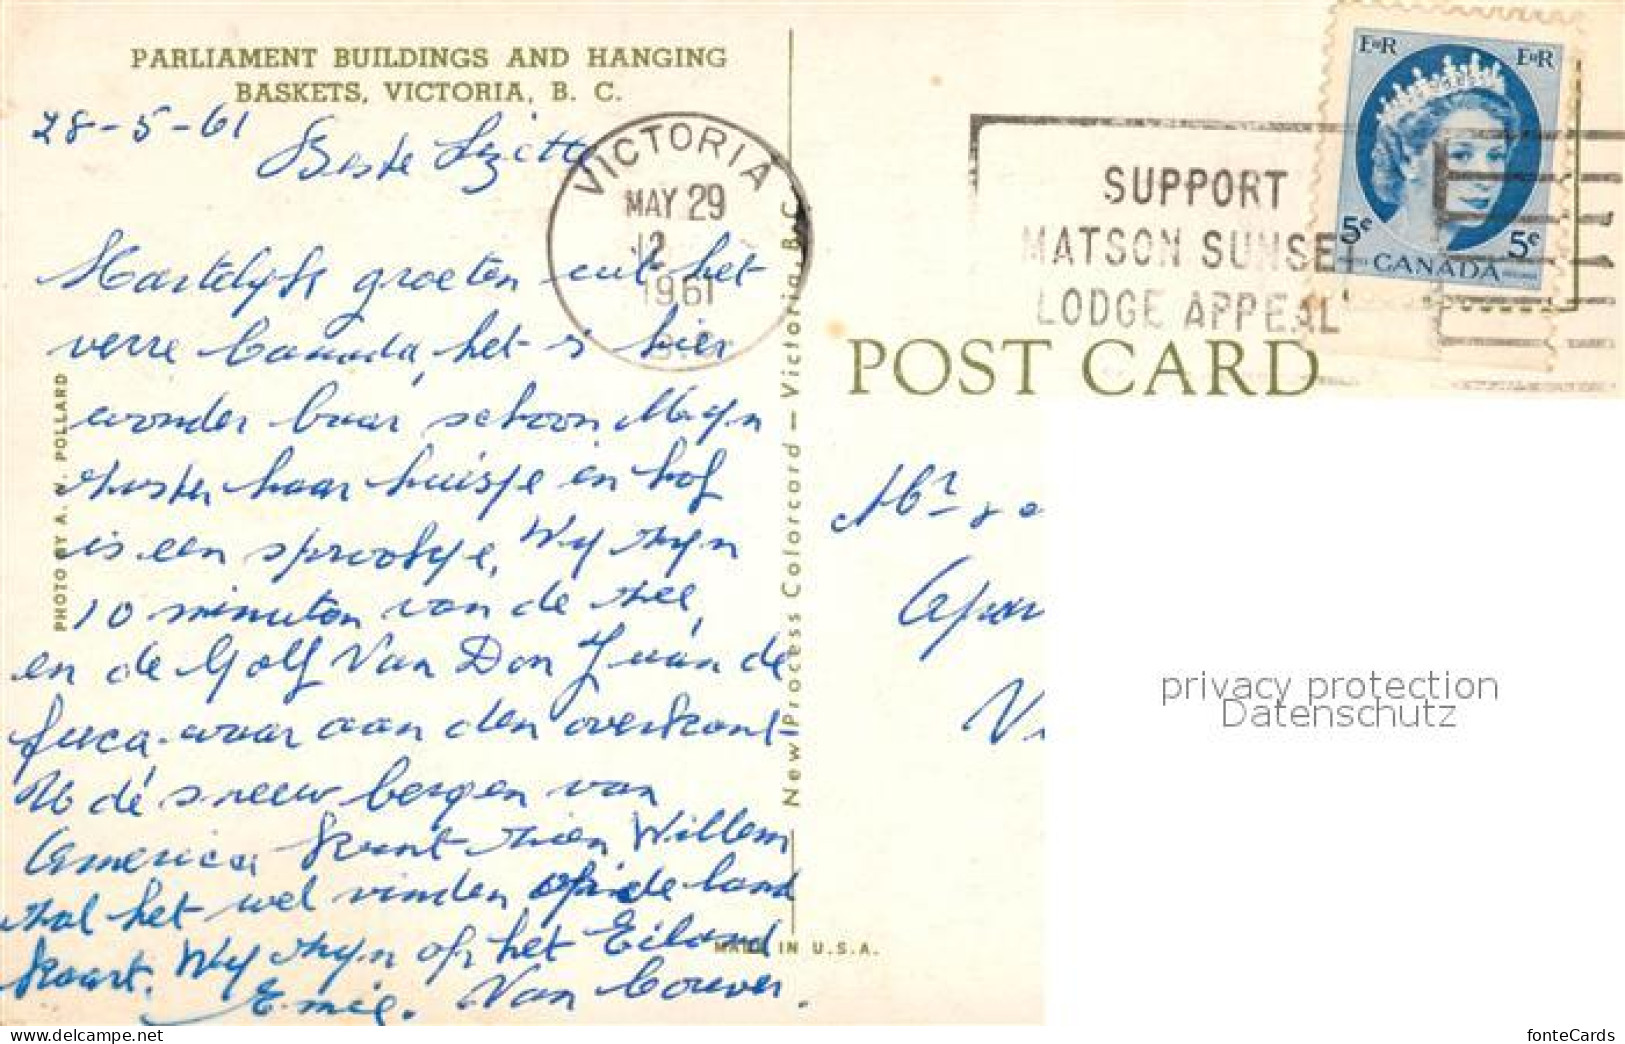 PARLIAMENT BUILDINGS AND HANGING
BASKETS, VICTORIA, B. C.
28-5-61
Beste Lizette
Hartelijk groeten uit het
verre Canada, het is hier
wonder baar schoon, Mijn
zuster haar huisje en hof
is een sprookje, Wij zijn
10 minuten van de zee,
en de Golf Van Don Juan de
fuca. waar aan den overkant
de sneeuw bergen van
America kunt zien Willem
zal het wel vinden op de land
kaart. Wij zijn op het Eiland
Van Couver.
Emie.
PHOTO BY A. W. POLLARD
New Process Colorcard — Victoria, B.C.
MADE IN U.S.A.
VICTORIA
MAY 29
12
1961
SUPPORT
MATSON SUNSET
LODGE APPEAL
E II R
E II R
5¢
5¢
CANADA
POST CARD
Mr
privacy protection
Datenschutz
fonteCards